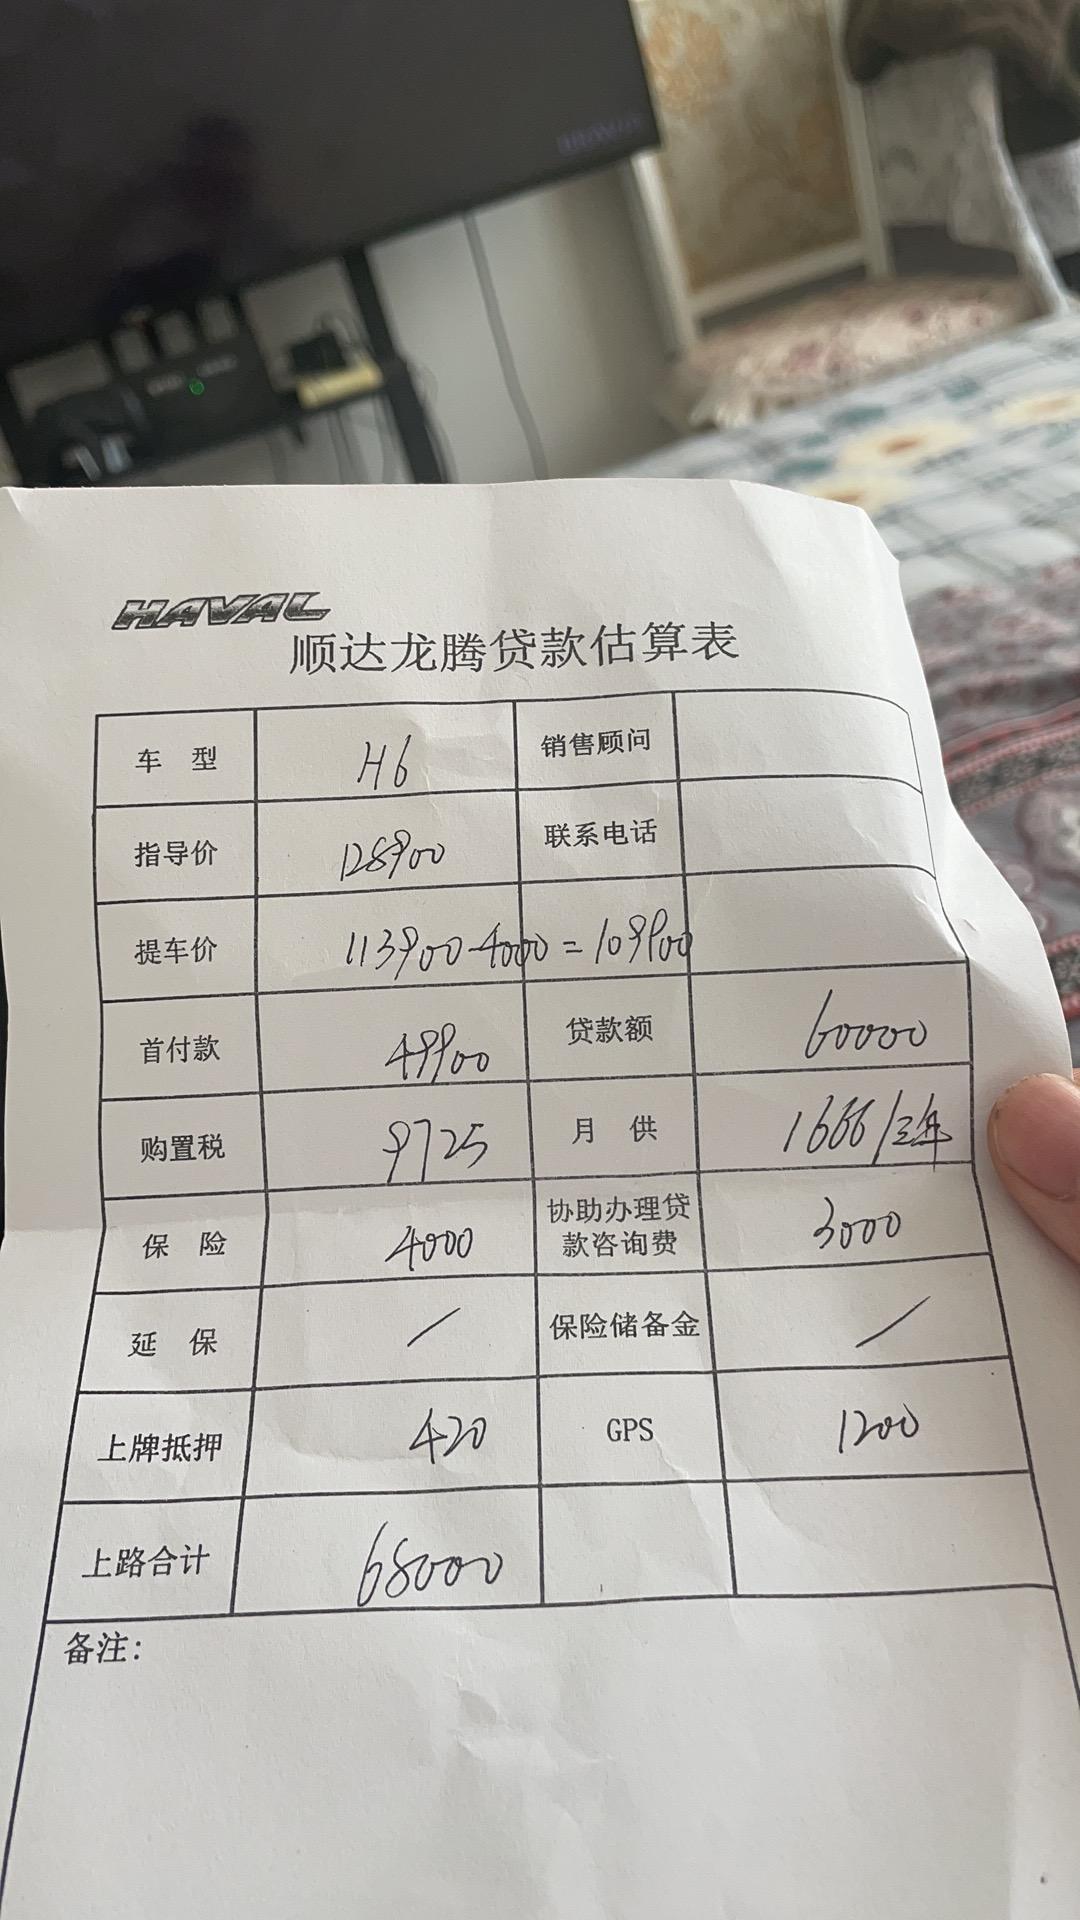 HAVAL
顺达龙腾贷款估算表
车 型 H6 销售顾问
指导价 128900 联系电话
提车价 113900-4000=109900
首付款 49900 贷款额 60000
购置税 9725 月 供 1666/三年
保 险 4000 协助办理贷款咨询费 3000
延 保 / 保险储备金 /
上牌抵押 420 GPS 1200
上路合计 68000
备注: